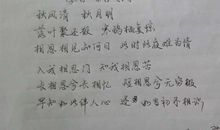 秋风清 秋月明
落叶聚还散 寒鸦栖复惊
相思相见知何日 此时此夜难为情
入我相思门 知我相思苦
长相思兮长相忆 短相思兮无穷极
早知如此绊人心 还 如当初不相识